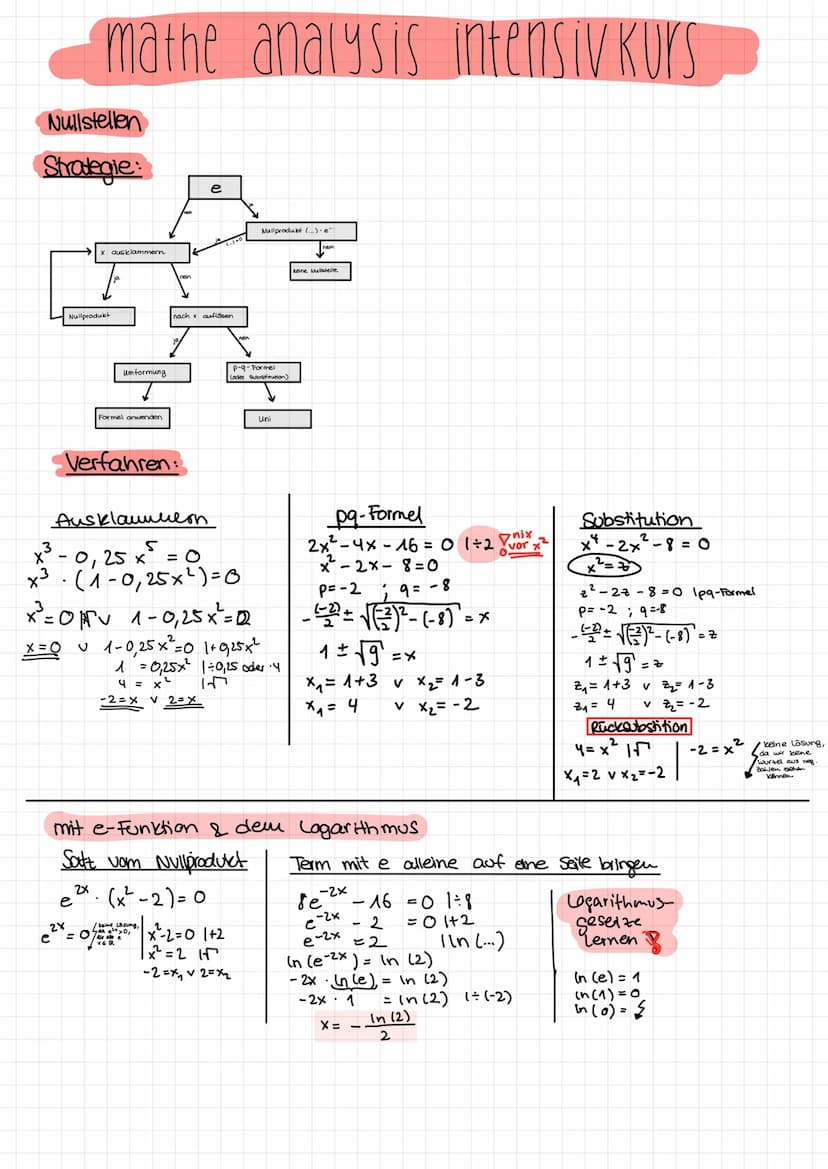 mathe analysis intensivkurs
Nullstellen
Strategie:
e
nein
ja
Nullprodukt (...)·e
ja (...)=0
nein
x ausklammern
keine Nullstelle
ja
nein
Nullprodukt
nach x auflösen
ja
nein
Umformung
p-q-Formel
(oder Substitution)
Formel anwenden
Uni
Verfahren:
Ausklammern
x³ - 0,25x⁵ = 0
x³ · (1-0,25x²)=0
x³=0 v 1-0,25x²=0
x=0 v 1-0,25x²=0 |+0,25x²
1 =0,25x² |÷0,25 oder ·4
4 = x² |√
-2=x v 2=x
pq-Formel
2x²-4x-16=0 |÷2 nix vor x²
x²-2x-8=0
p=-2 ; q=-8
-(-2)/2 ± √((-2)/2)²-(-8) = x
1 ± √9 = x
x₁=1+3 v x₂=1-3
x₁=4 v x₂=-2
Substitution
x⁴-2x²-8=0
x²=z
z²-2z-8=0 |pq-Formel
p=-2 ; q=-8
-(-2)/2 ± √((-2)/2)²-(-8) = z
1 ± √9 = z
z₁=1+3 v z₂=1-3
z₁=4 v z₂=-2
Rücksubstition
4=x² |√
x₁=2 v x₂=-2
-2=x²
keine Lösung,
da wir keine
Wurzel aus neg.
Zahlen ziehen
können
mit e-Funktion & dem Logarithmus
Satz vom Nullprodukt
e²ˣ · (x²-2)=0
e²ˣ=0
keine Lösung,
x²-2=0 |+2
x²=2 |√
-2=x₁ v 2=x₂
Term mit e alleine auf eine Seite bringen
8e⁻²ˣ - 16 = 0 |÷8
e⁻²ˣ - 2 = 0 |+2
e⁻²ˣ = 2 |ln(...)
ln(e⁻²ˣ) = ln(2)
-2x · ln(e) = ln(2)
-2x · 1 = ln(2) |÷(-2)
x = - ln(2)/2
Logarithmus-
gesetze
lernen!
ln(e)=1
ln(1)=0
ln(0)=↯